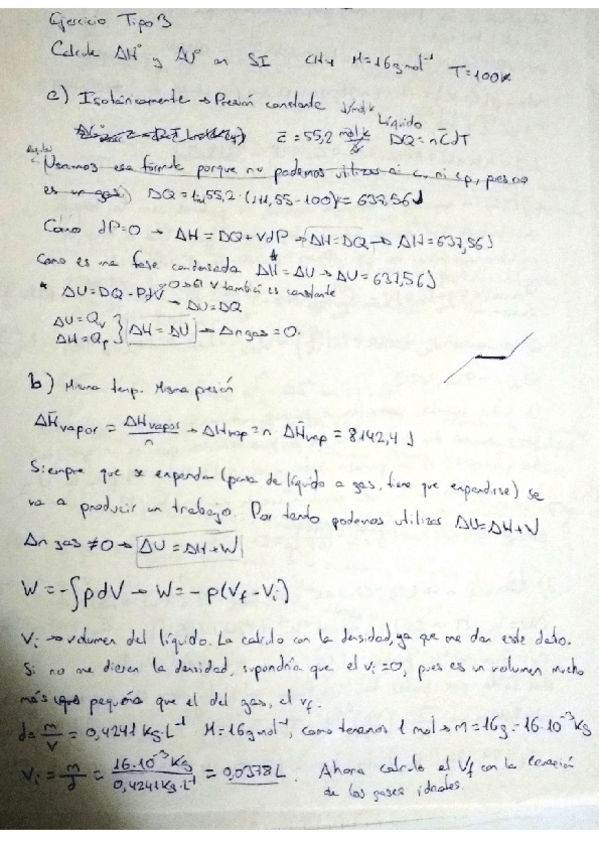 Ejercicio Tipo 3
Calcule ΔH° y ΔU° en SI CH4 M=16g mol⁻¹ T=100K
a) Isobáricamente → Presión constante J/mol·K Líquido
c̄ = 55,2 DQ = n c̄ dT
Usamos esa fórmula porque no podemos utilizar ni cv ni cp, pues no
es un gas) DQ = 1·55,2·(111,55-100) = 637,56 J
Como dP=0 → ΔH = DQ + VdP → ΔH = DQ → ΔH = 637,56 J
Como es una fase condensada ΔH* = ΔU → ΔU = 637,56 J
* ΔU = DQ - PdV → 0 → El V también es constante
→ ΔU = DQ
ΔU = Qv
ΔH = Qp } ΔH = ΔU → Δn gas = 0.
b) Misma temp. Misma presión
ΔH̄vapor = ΔHvapor/n → ΔHvap = n ΔH̄vap = 8142,4 J
Siempre que se expandan (pasa de líquido a gas, tiene que expandirse) se
va a producir un trabajo. Por tanto podemos utilizar ΔU=ΔH+W
Δn gas ≠ 0 → ΔU = ΔH + W
W = -∫pdV → W = -p(Vf - Vi)
Vi → volumen del líquido. La calculo con la densidad, ya que me dan este dato.
Si no me dieran la densidad, supondría que el vi = 0, pues es un volumen mucho
más pequeño que el del gas, el vf.
d = m/V = 0,4241 Kg·L⁻¹ M=16g mol⁻¹, como tenemos 1 mol → m = 16g = 16·10⁻³ Kg
Vi = m/d = 16·10⁻³ Kg / 0,4241 Kg·L⁻¹ = 0,0378 L. Ahora calculo el Vf con la ecuación
de los gases ideales.